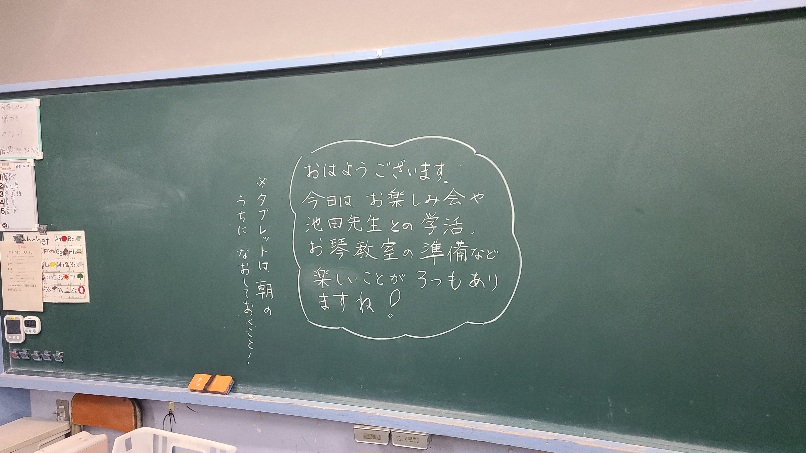 おはようございます。
今日は お楽しみ会や
池田先生との学活、
お琴教室の準備など
楽しいことが 3つもあり
ますね!
※タブレットは 朝の
うちに なおしておくこと!